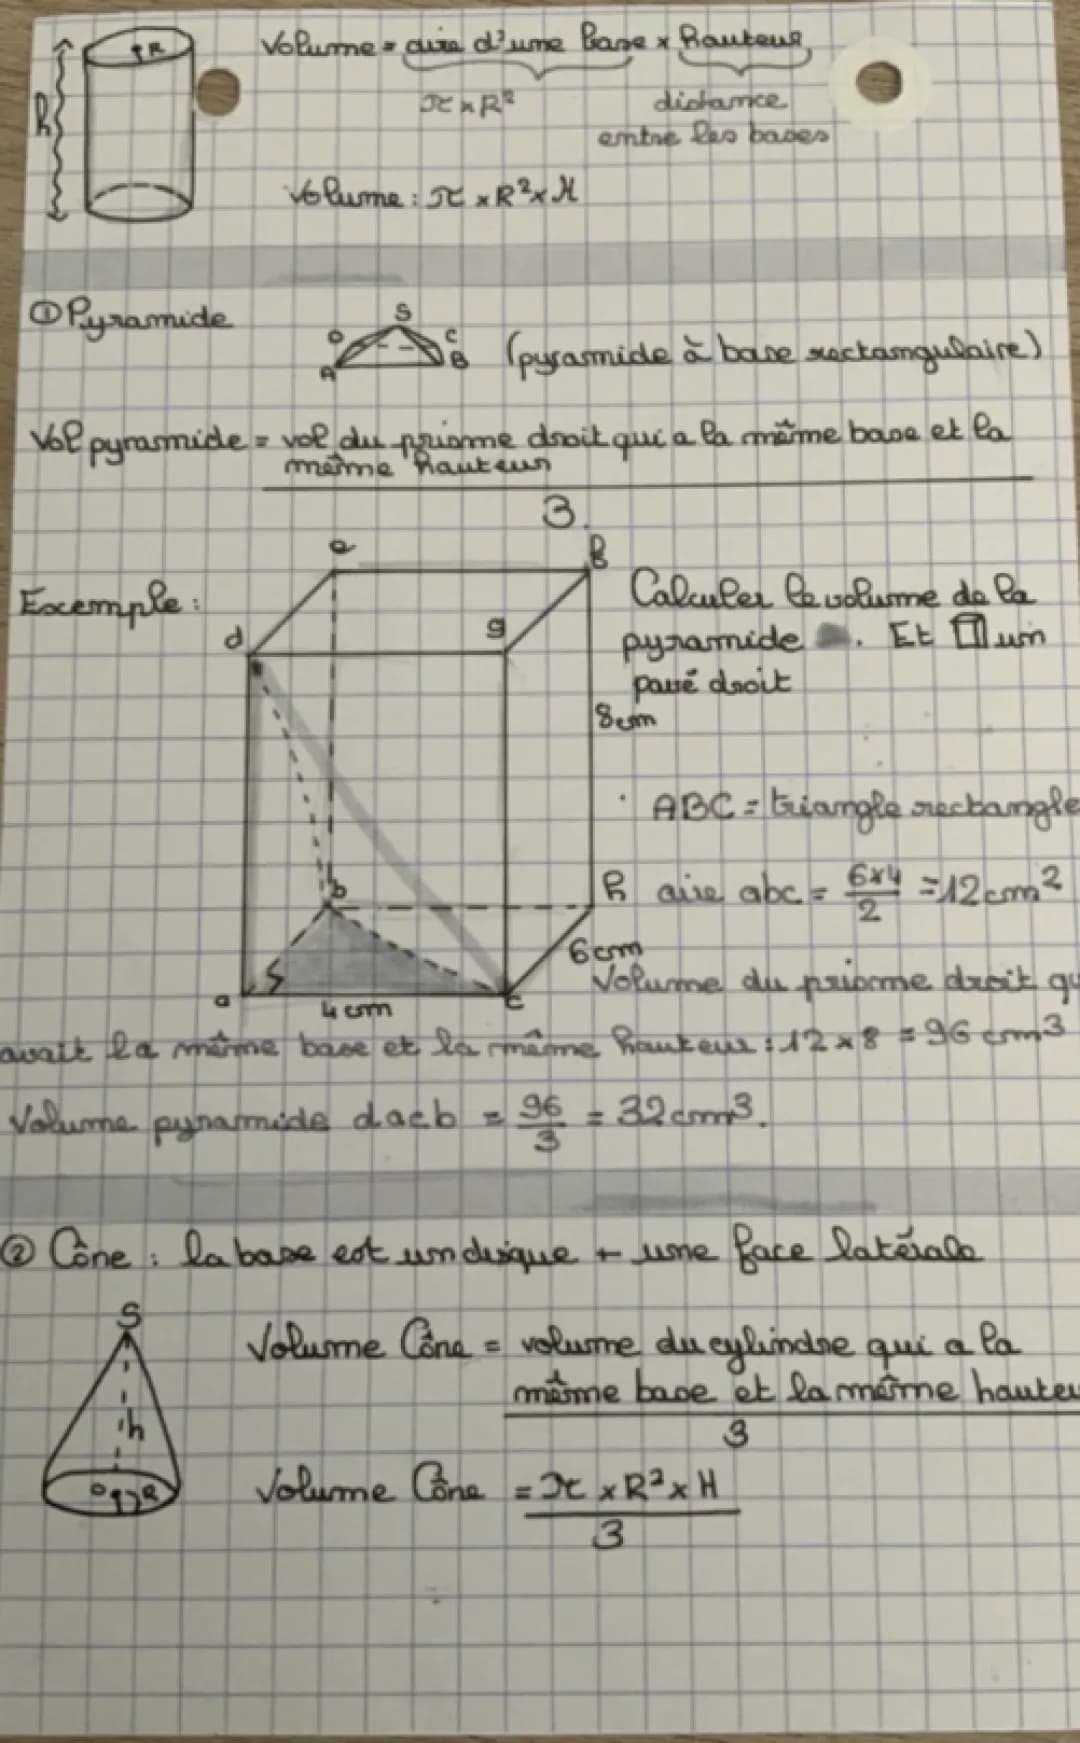 Volume = aire d'une base x hauteur
R
h
π x R²
distance
entre les bases
Volume : π x R² x H
① Pyramide
S
D
C
A
B
(pyramide à base rectangulaire)
Vol pyramide = vol du prisme droit qui a la même base et la
même hauteur
3
Exemple :
e
f
d
g
Calculer le volume de la
pyramide . Et un
pavé droit
8cm
ABC = triangle rectangle
b
h
aire abc = 6x4/2 = 12cm²
6cm
a
c
4cm
Volume du prisme droit qu
avait la même base et la même hauteur : 12 x 8 = 96 cm³
Volume pyramide dacb = 96/3 = 32cm³.
② Cône : la base est un disque + une face latérale
S
h
O
R
Volume Cône = volume du cylindre qui a la
même base et la même hauteu
3
Volume Cône = π x R² x H
3